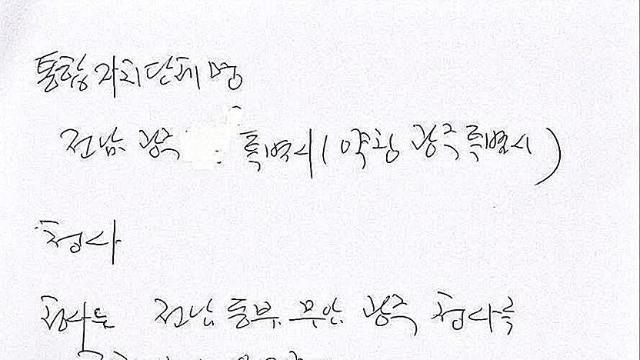 통합자치단체명
전남광주 특별시(약칭 광주특별시)
청사
청사는 전남 동부 무안 광주 청사를